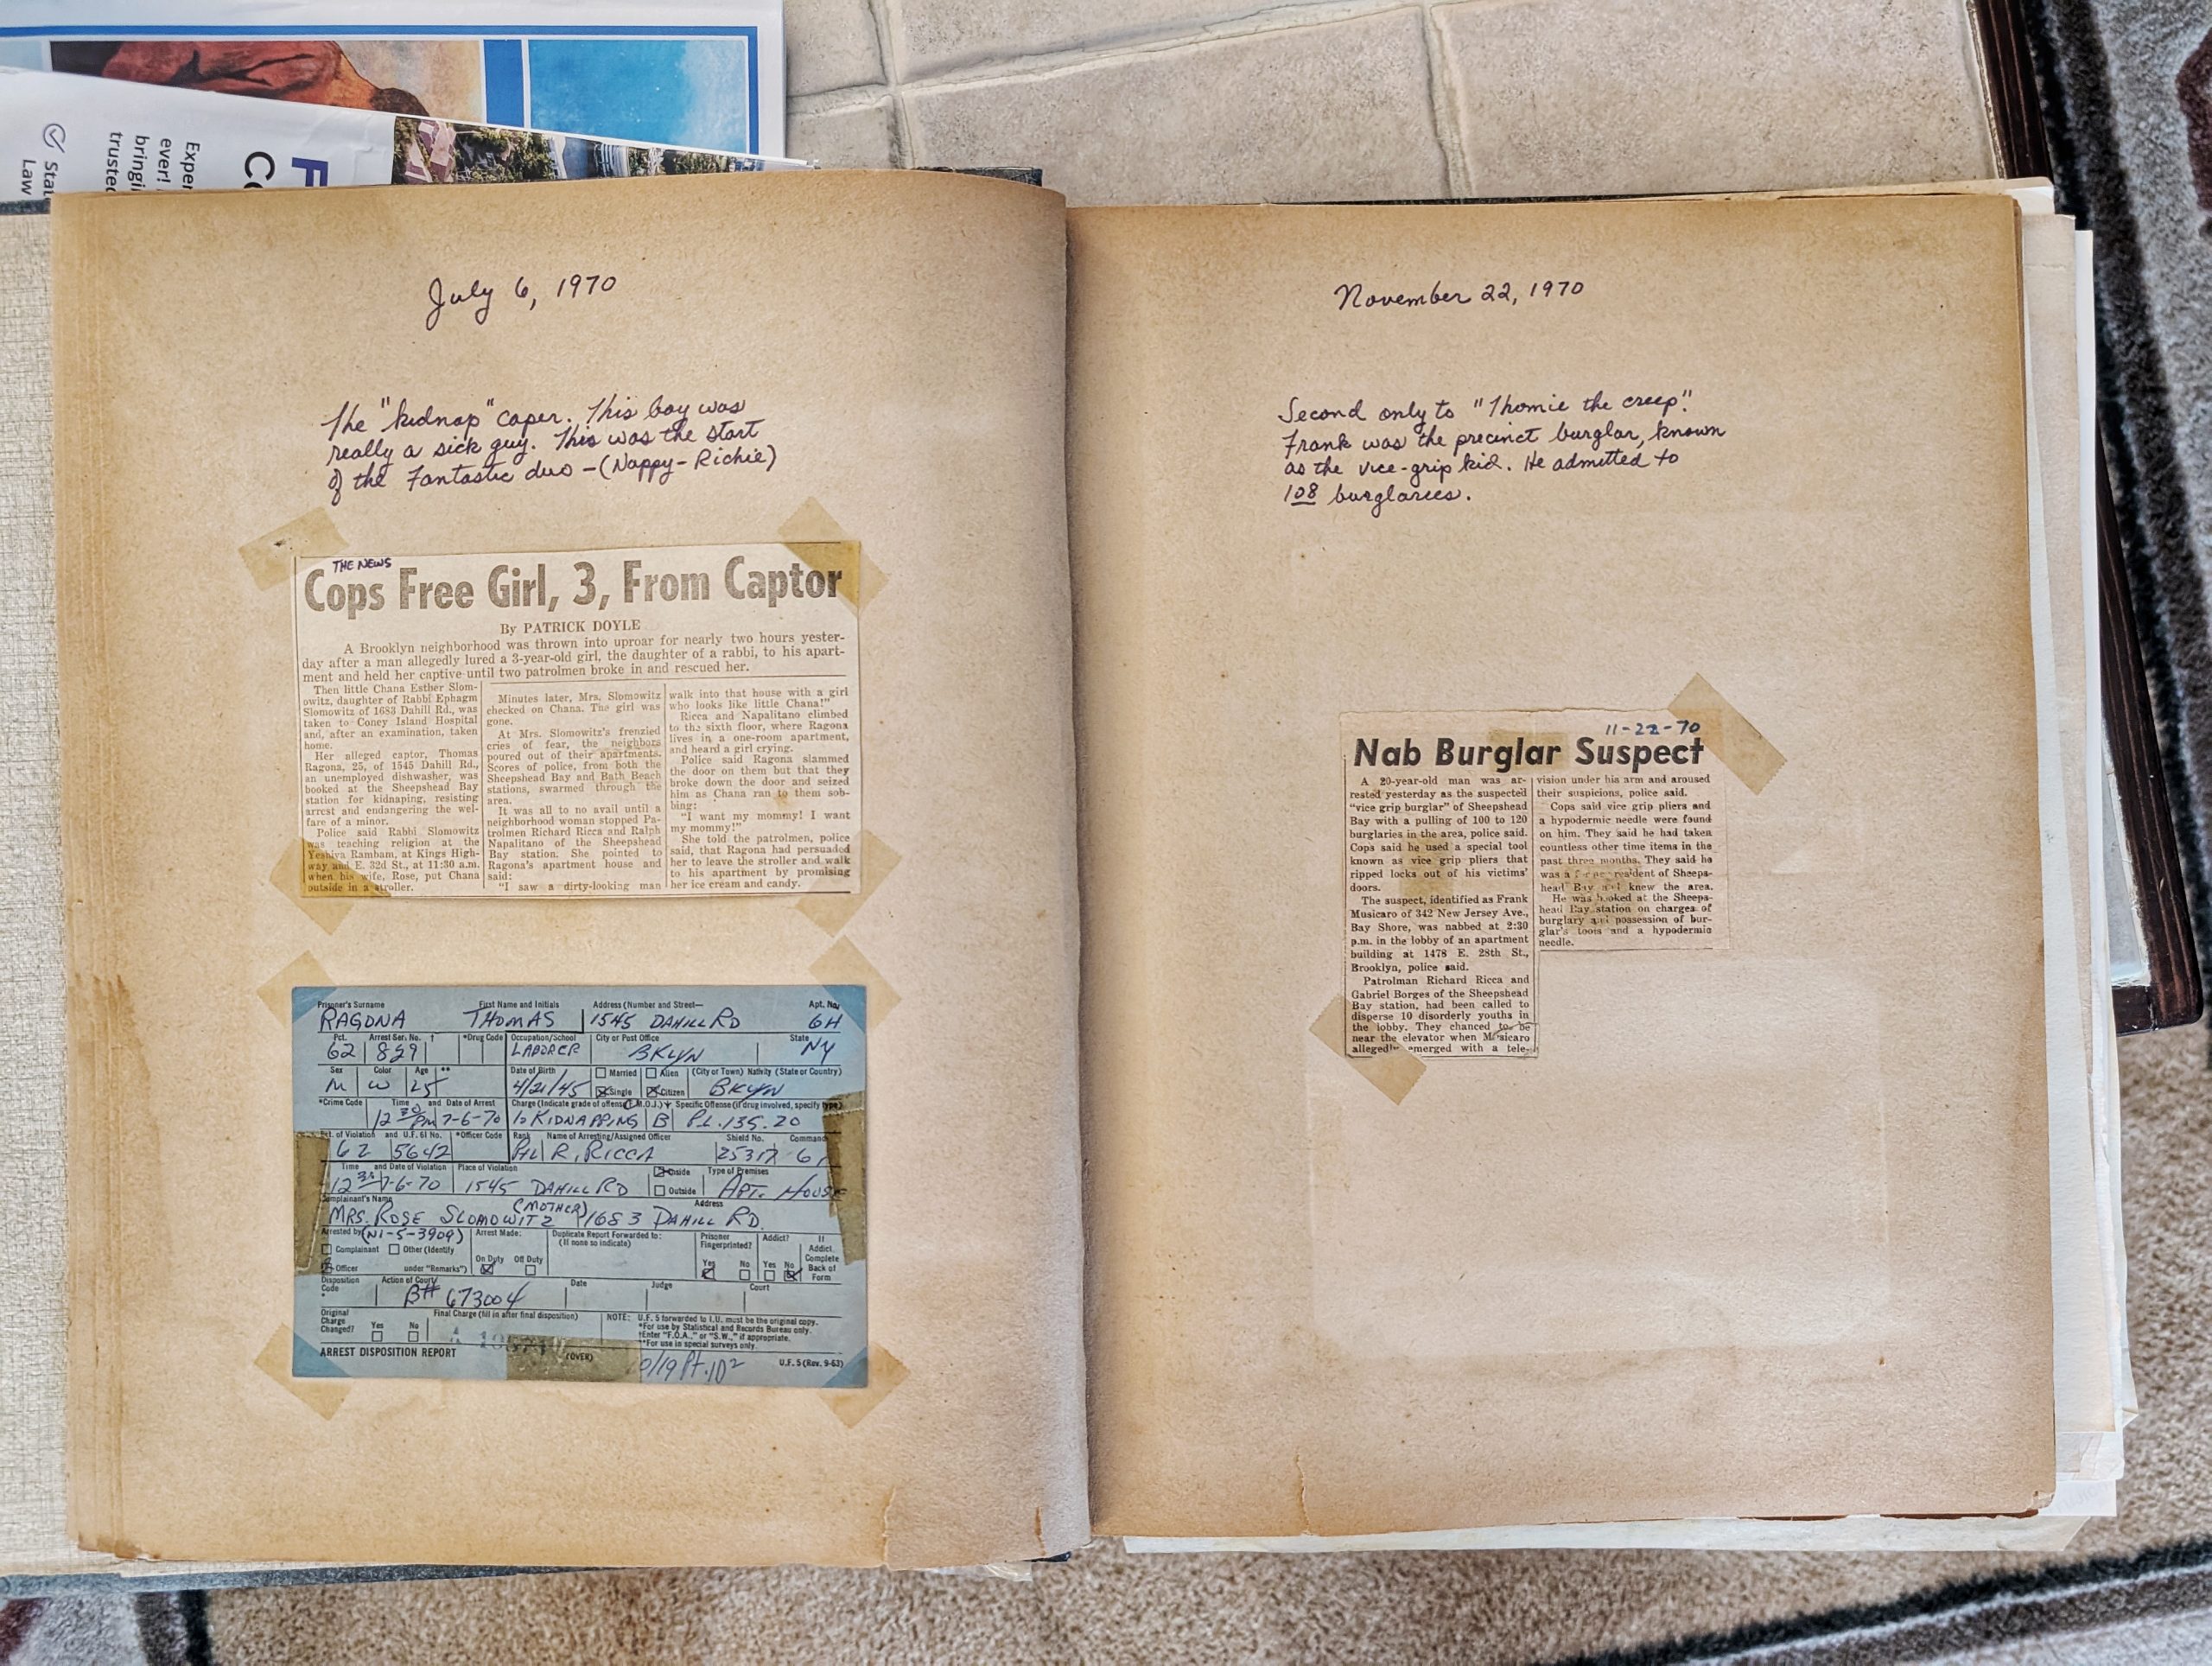 Exper
ever!
bringi
trusted
Law
July 6, 1970
The "kidnap" caper. This boy was
really a sick guy. This was the start
of the Fantastic duo - (Nappy - Richie)
THE NEWS
Cops Free Girl, 3, From Captor
By PATRICK DOYLE
A Brooklyn neighborhood was thrown into uproar for nearly two hours yester-
day after a man allegedly lured a 3-year-old girl, the daughter of a rabbi, to his apart-
ment and held her captive until two patrolmen broke in and rescued her.
Then little Chana Esther Slom-
owitz, daughter of Rabbi Ephagm
Slomowitz of 1683 Dahill Rd., was
taken to Coney Island Hospital
and, after an examination, taken
home.
Her alleged captor, Thomas
Ragona, 25, of 1545 Dahill Rd.,
an unemployed dishwasher, was
booked at the Sheepshead Bay
station for kidnaping, resisting
arrest and endangering the wel-
fare of a minor.
Police said Rabbi Slomowitz
was teaching religion at the
Yeshiva Rambam, at Kings High-
way and E. 32d St., at 11:30 a.m.
when his wife, Rose, put Chana
outside in a stroller.
Minutes later, Mrs. Slomowitz
checked on Chana. The girl was
gone.
At Mrs. Slomowitz's frenzied
cries of fear, the neighbors
poured out of their apartments.
Scores of police, from both the
Sheepshead Bay and Bath Beach
stations, swarmed through the
area.
It was all to no avail until a
neighborhood woman stopped Pa-
trolmen Richard Ricca and Ralph
Napolitano of the Sheepshead
Bay station. She pointed to
Ragona's apartment house and
said:
"I saw a dirty-looking man
walk into that house with a girl
who looks like little Chana!"
Ricca and Napalitano climbed
to the sixth floor, where Ragona
lives in a one-room apartment,
and heard a girl crying.
Police said Ragona slammed
the door on them but that they
broke down the door and seized
him as Chana ran to them sob-
bing:
"I want my mommy! I want
my mommy!"
She told the patrolmen, police
said, that Ragona had persuaded
her to leave the stroller and walk
to his apartment by promising
her ice cream and candy.
Prisoner's Surname First Name and Initials Address (Number and Street— Apt. No.
RAGONA THOMAS 1545 DAHILL RD 6H
Pct. Arrest Ser. No. † *Drug Code Occupation/School City or Post Office State
62 829 LABORER BKLYN NY
Sex Color Age ** Date of Birth Married Alien (City or Town) Nativity (State or Country)
M W 25 4/21/45 Single Citizen BKLYN
*Crime Code Time and Date of Arrest Charge (Indicate grade of offense) Specific Offense (if drug involved, specify type)
12 30 PM 7-6-70 1° KIDNAPPING B P.L. 135.20
Pct. of Violation and U.F. 61 No. *Officer Code Rank Name of Arresting/Assigned Officer Shield No. Command
62 5642 Ptl R. RICCA 25317
Time and Date of Violation Place of Violation Inside Outside Type of Premises
12 30 7-6-70 1545 DAHILL RD APT. HOUSE
Complainant's Name Address
MRS. ROSE SLOMOWITZ (MOTHER) 1683 DAHILL RD.
Arrested by (NI-5-3909) Arrest Made: Duplicate Report Forwarded to: Prisoner Addict? If
Complainant Other (Identify (If none so indicate) Fingerprinted? Addict
Officer under "Remarks") On Duty Off Duty Yes No Yes No Complete Back of Form
Disposition Code * Action of Court Date Judge Court
B# 673004
Original Charge Changed? Yes No Final Charge (fill in after final disposition)
NOTE: U.F. 5 forwarded to I.U. must be the original copy.
*For use by Statistical and Records Bureau only.
†Enter "F.O.A.," or "S.W.," if appropriate.
**For use in special surveys only.
ARREST DISPOSITION REPORT (OVER) U.F. 5 (Rev. 9-63)
November 22, 1970
Second only to "Thomie the creep".
Frank was the precinct burglar, known
as the vice-grip kid. He admitted to
108 burglaries.
11-22-70
Nab Burglar Suspect
A 20-year-old man was ar-
rested yesterday as the suspected
"vice grip burglar" of Sheepshead
Bay with a pulling of 100 to 120
burglaries in the area, police said.
Cops said he used a special tool
known as vice grip pliers that
ripped locks out of his victims'
doors.
The suspect, identified as Frank
Musicaro of 342 New Jersey Ave.,
Bay Shore, was nabbed at 2:30
p.m. in the lobby of an apartment
building at 1478 E. 28th St.,
Brooklyn, police said.
Patrolman Richard Ricca and
Gabriel Borges of the Sheepshead
Bay station, had been called to
disperse 10 disorderly youths in
the lobby. They chanced to be
near the elevator when Musicaro
allegedly emerged with a tele-
vision under his arm and aroused
their suspicions, police said.
Cops said vice grip pliers and
a hypodermic needle were found
on him. They said he had taken
countless other time items in the
past three months. They said he
was a former resident of Sheeps-
head Bay and knew the area.
He was booked at the Sheeps-
head Bay station on charges of
burglary and possession of bur-
glar's tools and a hypodermic
needle.